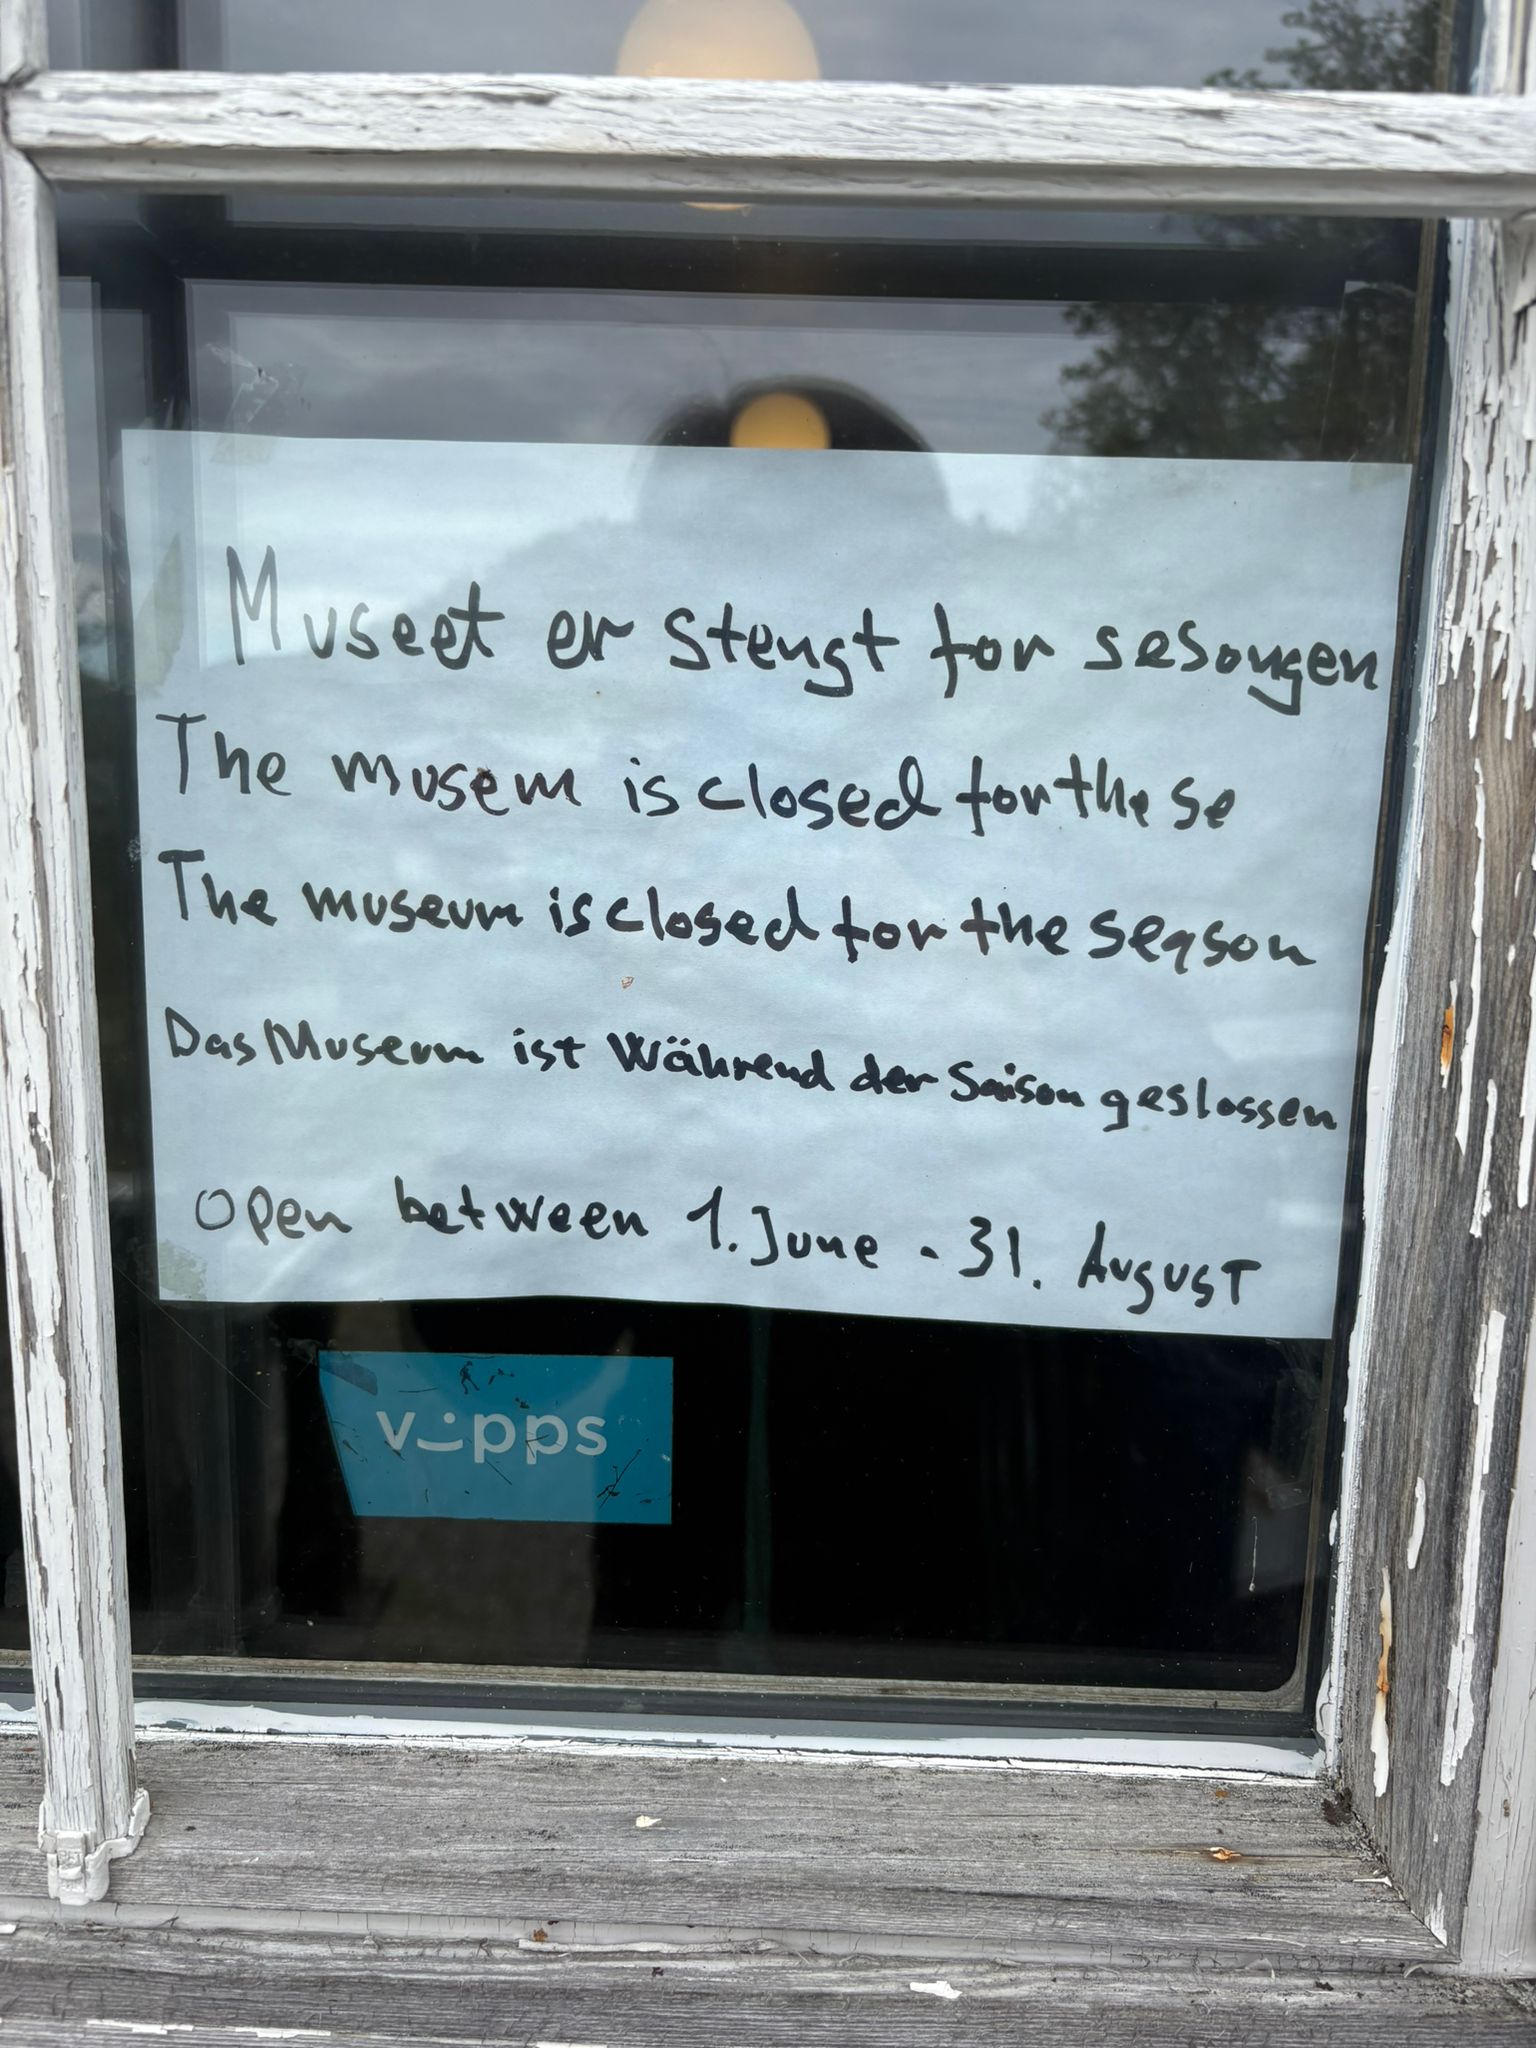 Museet er stengt for sesongen
The musem is closed for the se
The museum is closed for the season
Das Museum ist Während der Saison geslossen
Open between 1. June - 31. August
vipps